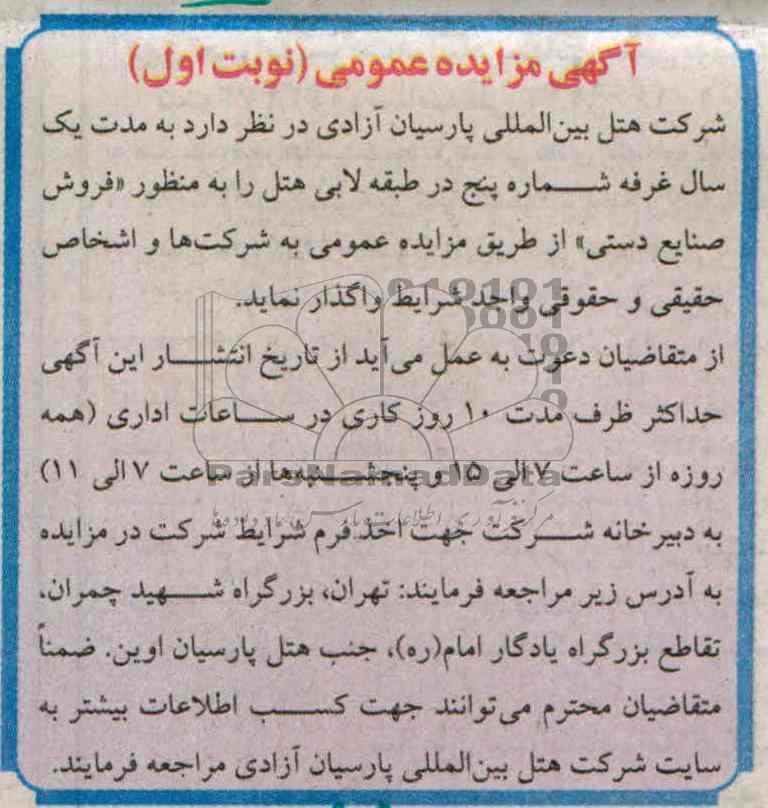 آگهی مزایده عمومی (نوبت اول)
شرکت هتل بین‌المللی پارسیان آزادی در نظر دارد به مدت یک
سال غرفه شماره پنج در طبقه لابی هتل را به منظور «فروش
صنایع دستی» از طریق مزایده عمومی به شرکت‌ها و اشخاص
حقیقی و حقوقی واجد شرایط واگذار نماید.
از متقاضیان دعوت به عمل می‌آید از تاریخ انتشار این آگهی
حداکثر ظرف مدت ۱۰ روز کاری در ساعات اداری (همه
روزه از ساعت ۷ الی ۱۵ و پنجشنبه‌ها از ساعت ۷ الی ۱۱)
ParsNamadData
به دبیرخانه شرکت جهت اخذ فرم شرایط شرکت در مزایده
به آدرس زیر مراجعه فرمایند: تهران، بزرگراه شهید چمران،
تقاطع بزرگراه یادگار امام(ره)، جنب هتل پارسیان اوین. ضمناً
متقاضیان محترم می‌توانند جهت کسب اطلاعات بیشتر به
سایت شرکت هتل بین‌المللی پارسیان آزادی مراجعه فرمایند.